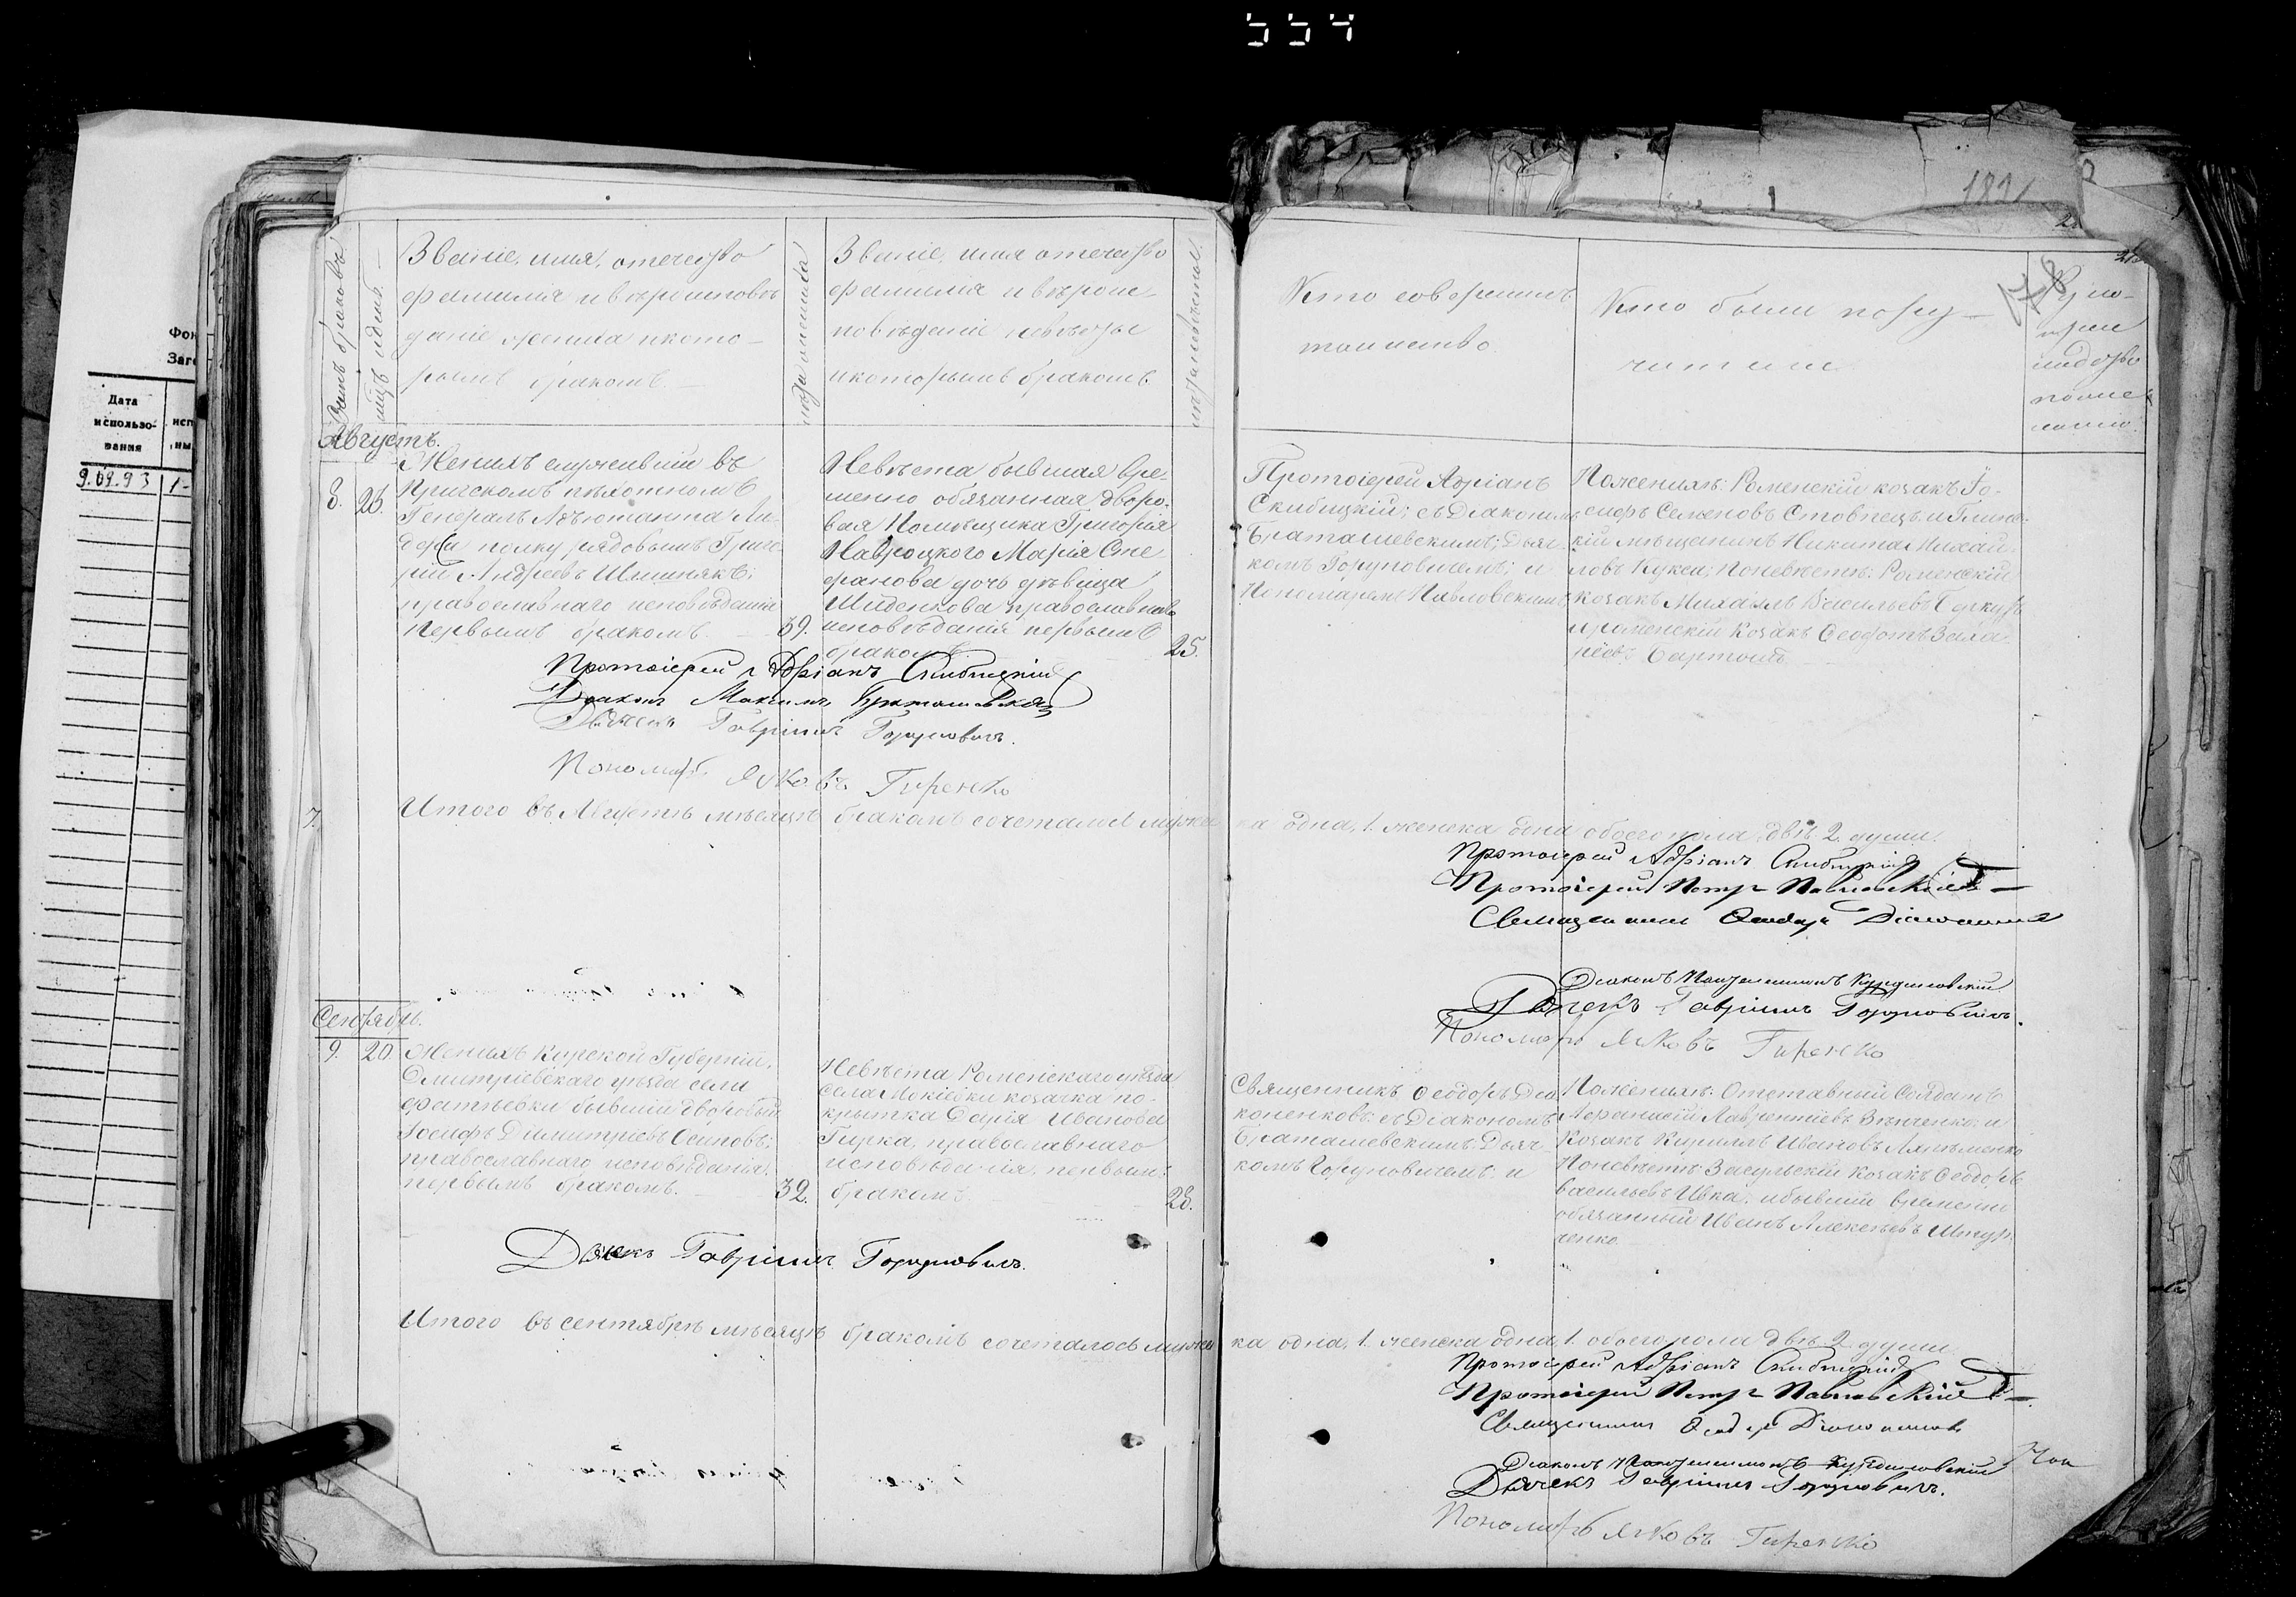 554
Фон
Заго
Дата
использо-
вания
исп
ны
9.09.93
1-
181
Счетъ браковъ
Званіе, имя, отечество
фамилія и вѣроисповѣ
даніе жениха и кото-
рымъ бракомъ. —
лѣта жениха
Званіе, имя отечество
фамилія и вѣроис-
повѣданіе невѣсты
и которымъ бракомъ.
лѣта невѣсты.
Кто совершилъ
таинство
Кто были пору-
чители
178
Августъ.
8. 26.
Женихъ служившій въ
пѣхотномъ
Генералъ Адъютанта Ли-
полку рядовымъ Григо-
рій Андреевъ Шлинякъ;
православнаго исповѣданія
первымъ бракомъ. —
39.
Невѣста бывшая вре-
менно обязанная дворо-
вая Помѣщика Григорія
Навроцкого Марія Сте
фанова дочь дѣвица
Шиденкова православнаго
исповѣданія первымъ
бракомъ
25.
Протоіерей Адріанъ
Скибицкій; съ Діакономъ
Браташевскимъ; Дьяч-
комъ Горуновичемъ; и
Пономаремъ Павловскимъ
По женихѣ: Роменскій козакъ Іо-
сифъ Семеновъ Стовпецъ и Глинс-
кій мѣщанинъ Никита Михай-
ловъ Кукса; По невѣстѣ: Роменскій
козакъ Михаилъ Васильевъ
и роменскій Козакъ Ѳеофотъ Заха
ріевъ
Протоіерей Адріанъ Скибицкій
Діаконъ Максимъ Браташевскій
Дьячекъ Гавріилъ Горуновичъ.
Пономарь Яковъ Гиренко
7.
Итого въ Августѣ мѣсяцѣ бракомъ сочеталось мужес
ка одна, 1. женска одна обоего пола двѣ 2 души.
Протоіерей Адріанъ Скибицкій
Протоіерей Петръ Павловскій
Священникъ Ѳеодоръ Діаконенко
Діаконъ Пантелеимонъ Курдиловскій
Дьячекъ Гавріилъ Горуновичъ.
Пономарь Яковъ Гиренко
Сентябрь.
9. 20
Женихъ Курской Губерніи,
Дмитріевскаго уѣзда села
Фатѣевки бывшій дворовый
Іосифъ Димитріевъ Осиповъ;
православнаго исповѣданія,
первымъ бракомъ. —
32.
Невѣста Роменскаго уѣзда
села Мокіевки козачка по-
крытка Дарія Иванова
Гирка, православнаго
исповѣданія, первымъ
бракомъ.
28.
Священникъ Ѳеодоръ Діа
коненковъ: съ Діакономъ
Браташевскимъ; Дьяч-
комъ Горуновичемъ. и
По женихѣ: Отставный Солдатъ
Афанасій Лаврентіевъ и
Козакъ Кириллъ Ивановъ
По невѣстѣ: Засульскій Козакъ Ѳеодоръ
Васильевъ Ивка, и бывшій временно
обязанный Иванъ Алексѣевъ
ченко
Дьячекъ Гавріилъ Горуновичъ.
Итого въ сентябрѣ мѣсяцѣ бракомъ сочеталось мужес
ка одна, 1. женска одна, 1. обоего пола двѣ 2 души
Протоіерей Адріанъ Скибицкій
Протоіерей Петръ Павловскій
Священникъ Ѳеодоръ Діаконенко
Діаконъ Пантелеимонъ Курдиловскій
Дьячекъ Гавріилъ Горуновичъ.
Пономарь Яковъ Гиренко